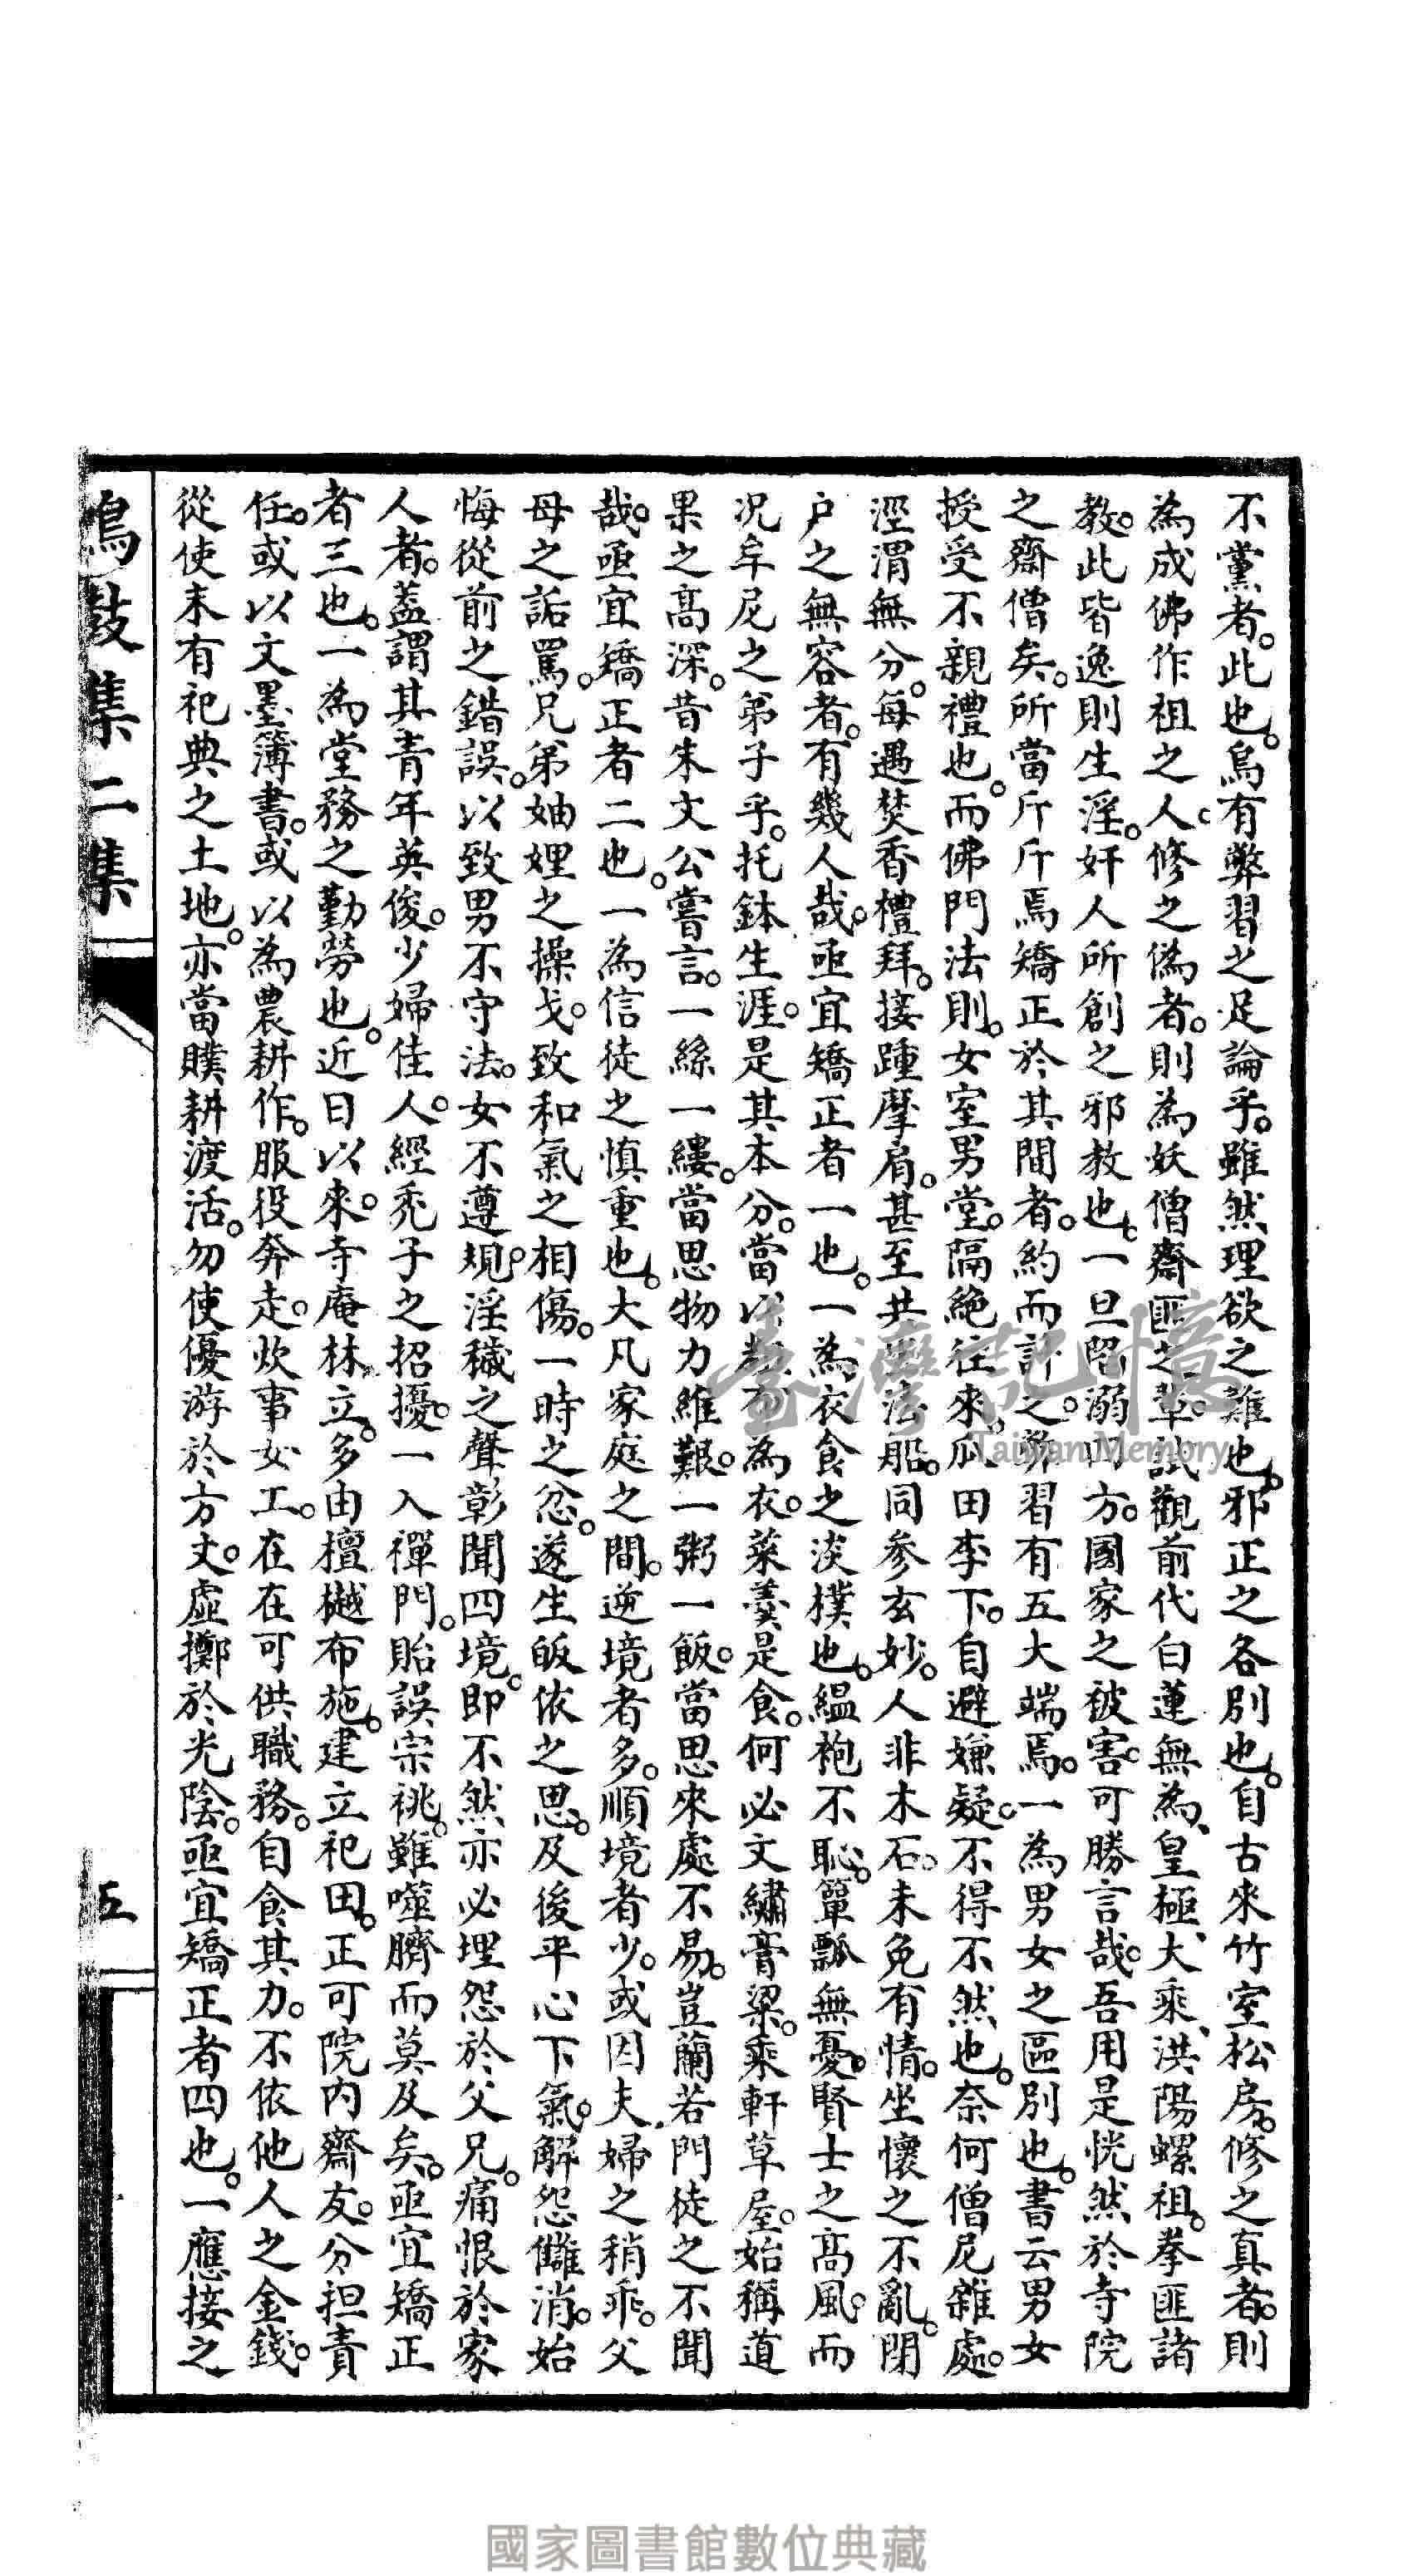 不黨者。此也。烏有弊習之足論乎。雖然理欲之難也。邪正之各別也。自古來竹室松房。修之真者。則
為成佛作祖之人。修之偽者。則為妖僧齋匪之輩。試觀前代白蓮無為、皇極、大乘、洪陽螺祖。拳匪諸
教。此皆逸則生淫。奸人所創之邪教也。一旦陷溺四方。國家之被害。可勝言哉。吾用是恍然於寺院
之齋僧矣。所當斤斤焉矯正於其間者。約而計之。弊習有五大端焉。一為男女之區別也。書云男女
授受不親禮也。而佛門法則。女室男堂。隔絕往來。瓜田李下。自避嫌疑。不得不然也。奈何僧尼雜處。
涇渭無分。每遇焚香禮拜。接踵摩肩。甚至共法船。同參玄妙。人非木石。未免有情。坐懷之不亂。閉
户之無容者。有幾人哉。亟宜矯正者一也。一為衣食之淡樸也。縕袍不恥。簞瓢無憂。賢士之高風。而
况牟尼之弟子乎。托鉢生涯。是其本分。當以麤布為衣。菜羹是食。何必文繡膏粱。乘軒草屋。始稱道
果之高深。昔朱文公嘗言。一絲一縷。當思物力維艱。一粥一飯。當思來處不易。豈蘭若門徒之不聞
哉。亟宜矯正者二也。一為信徒之慎重也。大凡家庭之間。逆境者多。順境者少。或因夫婦之稍乖。父
母之詬罵。兄弟妯娌之操戈。致和氣之相傷。一時之忿。遂生皈依之思。及後平心下氣。解怨讎消。始
悔從前之錯誤。以致男不守法。女不遵規。淫穢之聲彰聞四境。即不然亦必埋怨於父兄。痛恨於家
人者。蓋謂其青年英俊。少婦佳人。經禿子之招擾。一入禪門。貽誤宗祧。雖噬臍而莫及矣。亟宜矯正
者三也。一為堂務之勤勞也。近日以來。寺庵林立。多由檀樾布施。建立祀田。正可院内齋友。分担責
任。或以文墨簿書。或以為農耕作。服役奔走。炊事女工。在在可供職務。自食其力。不依他人之金錢。
從使未有祀典之土地。亦當贌耕渡活。勿使優游於方丈。虛擲於光陰。亟宜矯正者四也。一應接之
鳴鼓集二集
五
臺灣記憶
Taiwan Memory
國家圖書館數位典藏